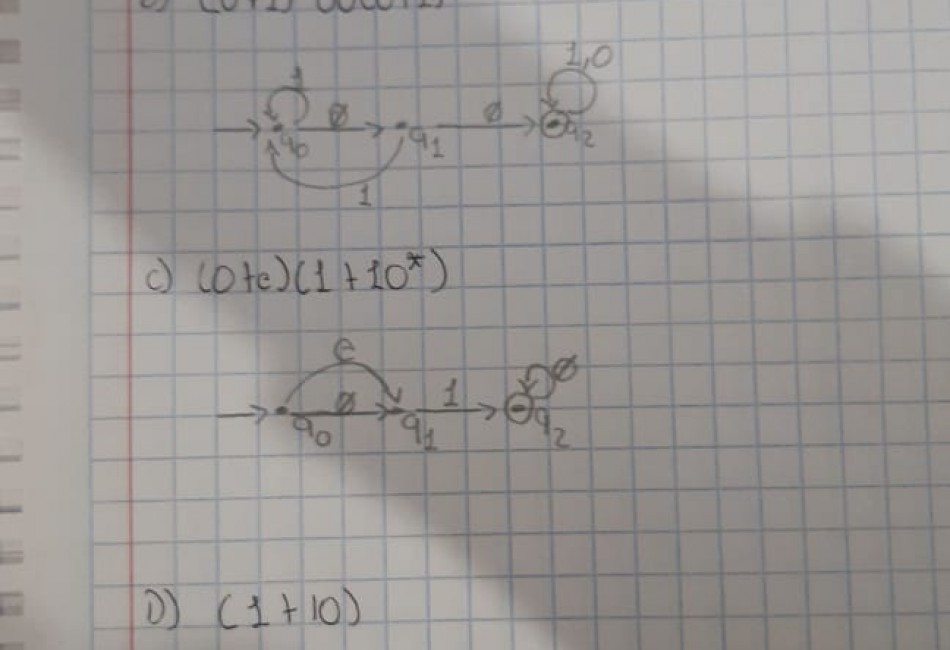 1 Ø Ø 1,0
q0 q1 q2
1
C) (0+e)(1+10*)
e
Ø 1 Ø
q0 q1 q2
D) (1+10)